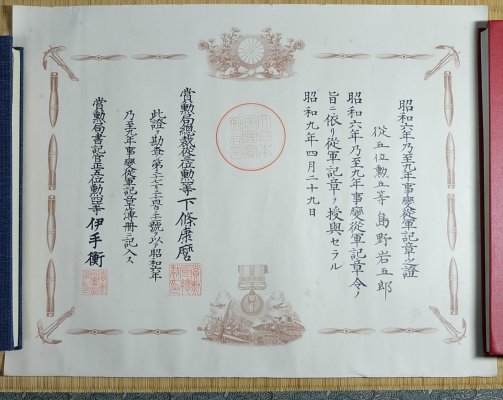 昭和六年乃至九年事變從軍記章之證
從五位勲五等 島野岩五郎
昭和六年乃至九年事變從軍記章令ノ
旨ニ依リ從軍記章ヲ授與セラル
昭和九年四月二十九日
賞勲局總裁從三位勲一等 下條康麿
此證ヲ勘査シ第 號ヲ以テ昭和六年
乃至九年事變從軍記章簿冊ニ記入ス
賞勲局書記官正五位勲四等 伊手衡